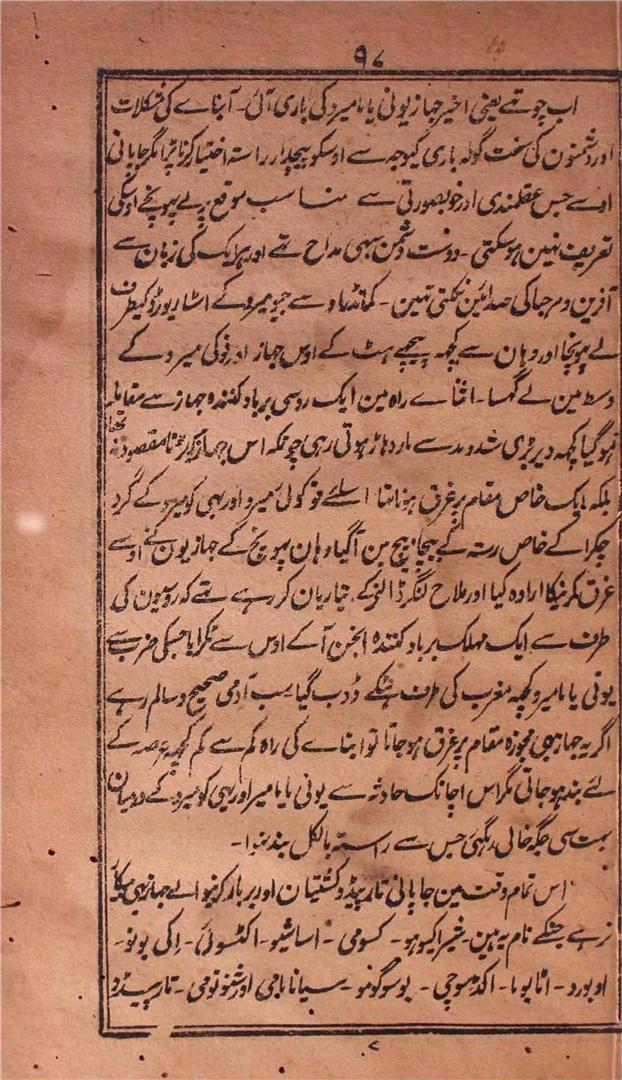 ۹۷
اب چوتھے یعنی اخیر جہاز یونی یاما میرو کی باری آئی۔ آبناے کی مشکلات
اور دشمنون کی سخت گولہ باری کیوجہ سے اوسکو پیچدار راستہ اختیار کرنا پڑا مگر جاپانی
اوسے جس عقلمندی اور خوبصورتی سے مناسب موقع پر لے پہونچے اوسکی
تعریف نہین ہوسکتی۔ دوست دشمن سبہی مداح تھے اور ہر ایک کی زبان سے
آفرین و مرحبا کی صدائین نکلتی تہین۔ کمانڈر اوسے جیو میرو کے اسٹار بورڈ کیطرف
لے پہونچا اور وہان سے کچہہ پیچھے ہٹ کے اوس جہاز اور فوکی میرو کے
وسط مین لے گہسا۔ اثناے راہ مین ایک روسی برباد کنندہ جہاز سے مقابلہ
ہوگیا کچہہ دیر بڑی شدومد سے مار دہاڑ ہوتی رہی چونکہ اس جہاز کو لڑنا مقصود نہ تھا
بلکہ ایک خاص مقام پر غرق ہونا تہا اسلئے فوکوئی میرو اور یہی کو میرو کے گرد
چکرا کے خاص رستہ کے بیچا بیچ مین آگیا وہان پہونچ کے جہازیون نے اوسے
غرق کرنیکا ارادہ کیا اور ملاح لنگر ڈالنے کی تیاریان کر رہے تھے کہ روسیون کی
طرف سے ایک مہلک برباد کنندہ انجن آکے اوس سے ٹکرایا جسکی ضرب سے
یونی یاما میرو کچہہ مغرب کی طرف ہٹکے ڈوب گیا سب آدمی صحیح و سالم رہے
اگر یہ جہاز بہی مجوزہ مقام پر غرق ہوجاتا تو ابناے کی راہ کم سے کم کچہہ عرصہ کے
لئے بند ہوجاتی مگر اس اچانک حادثہ سے یونی یاما میرو اور یہی کو میرو کے درمیان
بہت سی جگہ خالی رہگئی جس سے راستہ بالکل بند نہوا۔
اس تمام وقت مین جاپانی تارپیڈو کشتیان اور برباد کرنیوالے جہاز بہی
رہے جنکے نام یہ ہین۔ شیراکیوہو۔ کسومی۔ اساشیو۔ اکٹسوکی۔ اکی بونو۔
اوبورو۔ اناپوما۔ اکڈسوچی۔ یوسوگومو۔ سیانابامی اور شنونومی۔ تارپیڈو